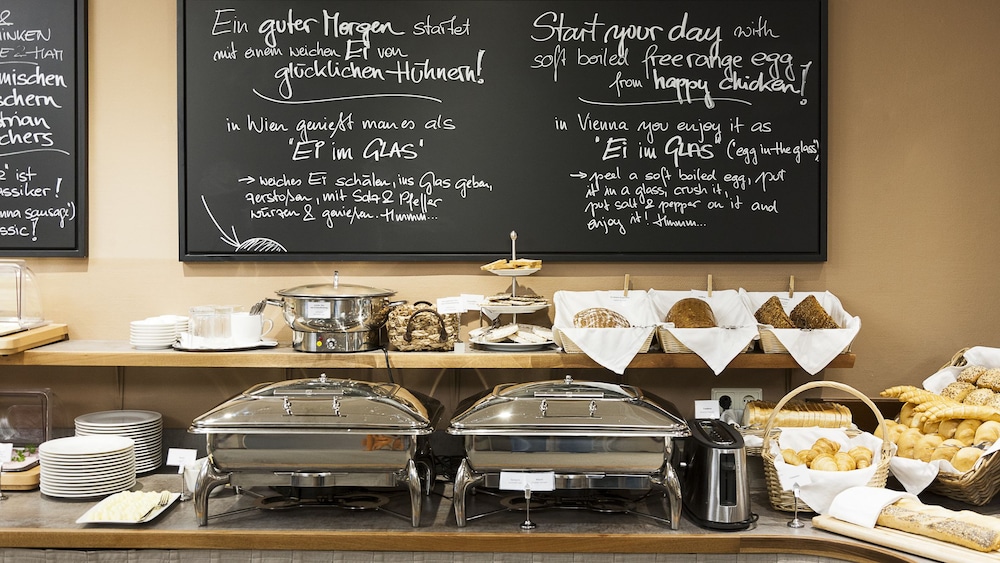 &
INKEN
E&HAM
mischen
schern
trian
chers
" ist
assiker!
nna sausage")
ssic!
Ein guter Morgen startet
mit einem weichen Ei von
glücklichen Hühnern!
in Wien genießt man es als
"EI im GLAS"
→ weiches Ei schälen, ins Glas geben,
zerstoßen, mit Salz & Pfeffer
würzen & genießen. Hmmm...
Start your day with
soft boiled freerange egg
from happy chicken!
in Vienna you enjoy it as
"Ei im GLAS" ("egg in the glass")
→ peel a soft boiled egg, put
it in a glass, crush it,
put salt & pepper on it and
enjoy it! Hmmm...